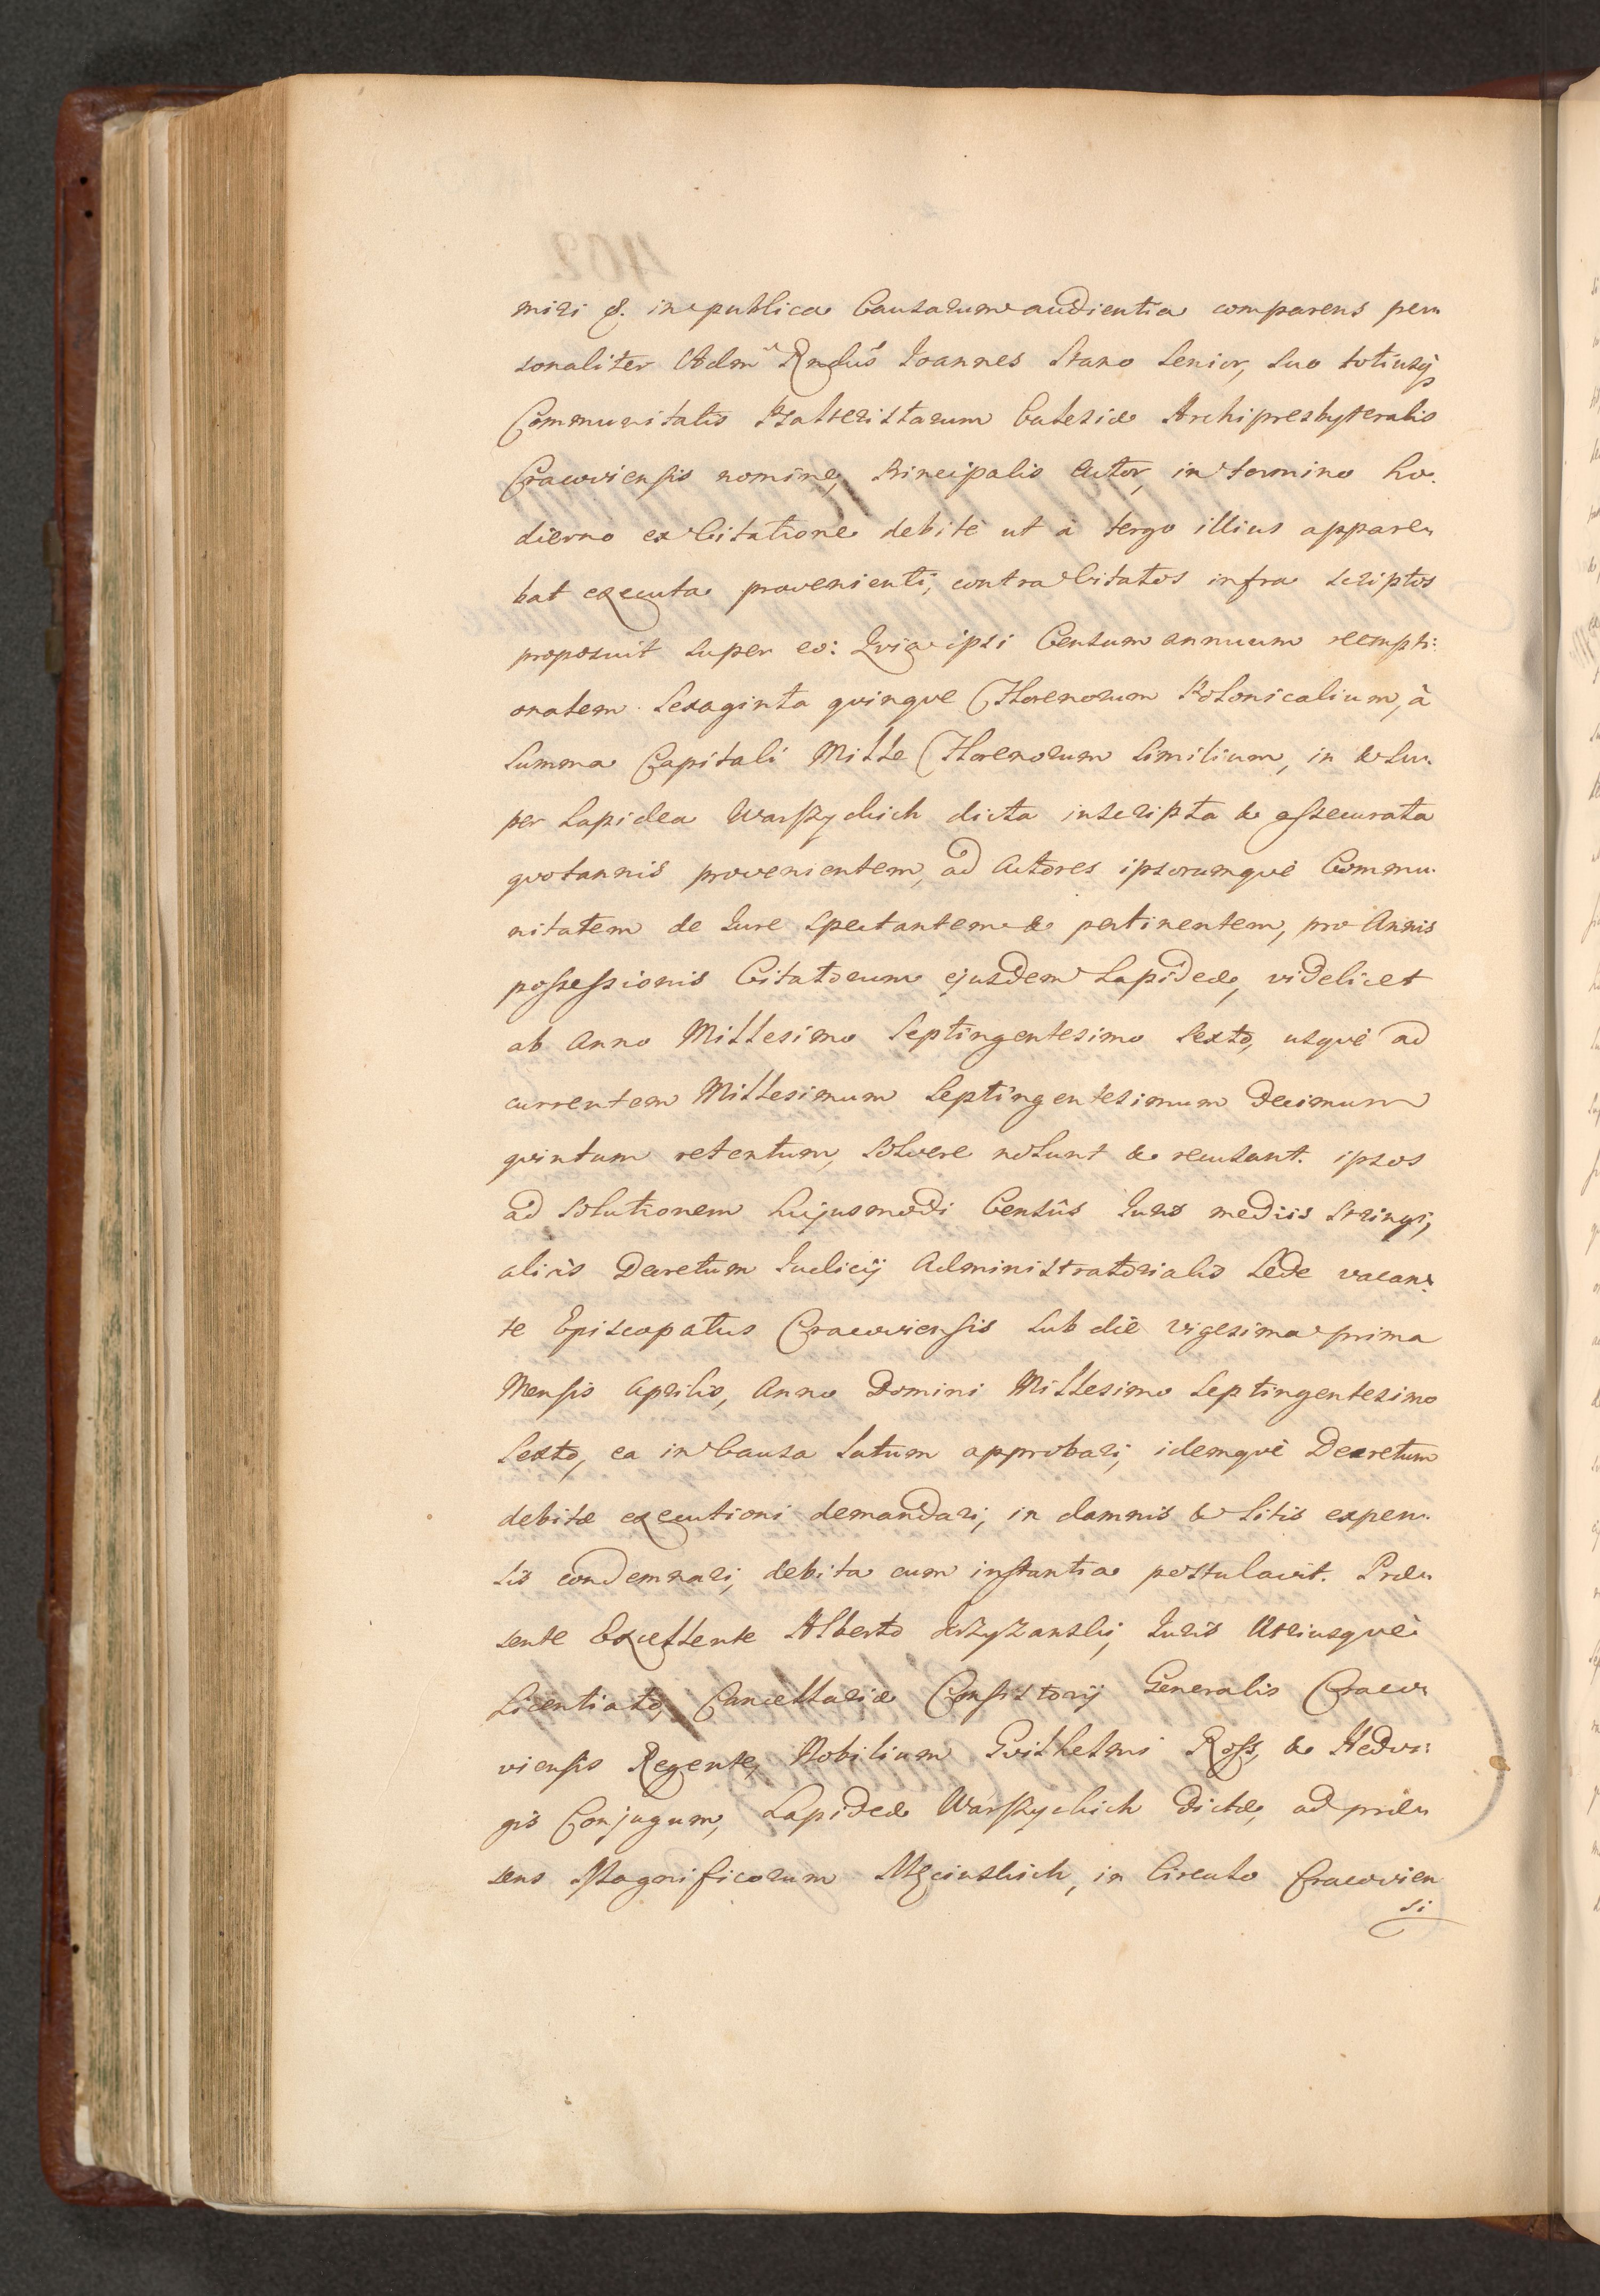 miri &. in publica Causarum audientia comparens per
sonaliter Adm Rndus Ioannes Stano Senior, suo totiusq
Communitatis Psalteristarum Ecclesiæ Archipresbyteralis
Cracoviensis nomine, Principalis Actor, in termino ho.
dierno ex Citatione debitè ut à tergo illius appare
bat executa provenienti, contra Citatos infra scriptos
proposuit super eo: Qvia ipsi Censum annuum reempti:
onalem Sexaginta qvinqve Florenorum Polonicalium, à
Summa Capitali Mille Florenorum similium, in & su.
per Lapidea Warszyckich dicta inscripta & assecurata
qvotannis provenientem, ad Actores ipsorumqve Commu.
nitatem de Iure spectantem & pertinentem, pro Annis
possessionis Citatorum ejusdem Lapideæ, videlicet
ab Anno Millesimo Septingentesimo Sexto, usqvè ad
currentem Millesimum Septingentesimum Decimum
qvintum retentum, solvere nolunt & recusant. ipsos
ad solutionem hujusmodi Censûs Iuris mediis stringi,
aliàs Decretum Iudicij Administratorialis Sede vacan
te Episcopatus Cracoviensis sub die vigesima prima
Mensis Aprilis, Anno Domini Millesimo Septingentesimo
Sexto, ea in Causa latum approbari, idemqvè Decretum
debitæ executioni demandari, in damnis & litis expen.
sis condemnari, debita cum instantia postulavit. Præ
sente Excellente Alberto Krzyzanski, Iuris Utriusqvè
Licentiato, Cancellariæ Consistorij Generalis Craco
viensis Regente, Nobilium Gvilhelmi Ross, & Hedvi:
gis Conjugum, Lapideæ Warszyckich dictæ, ad præ
sens Magnificorum Męcinskich, in Circulo Cracovien
si